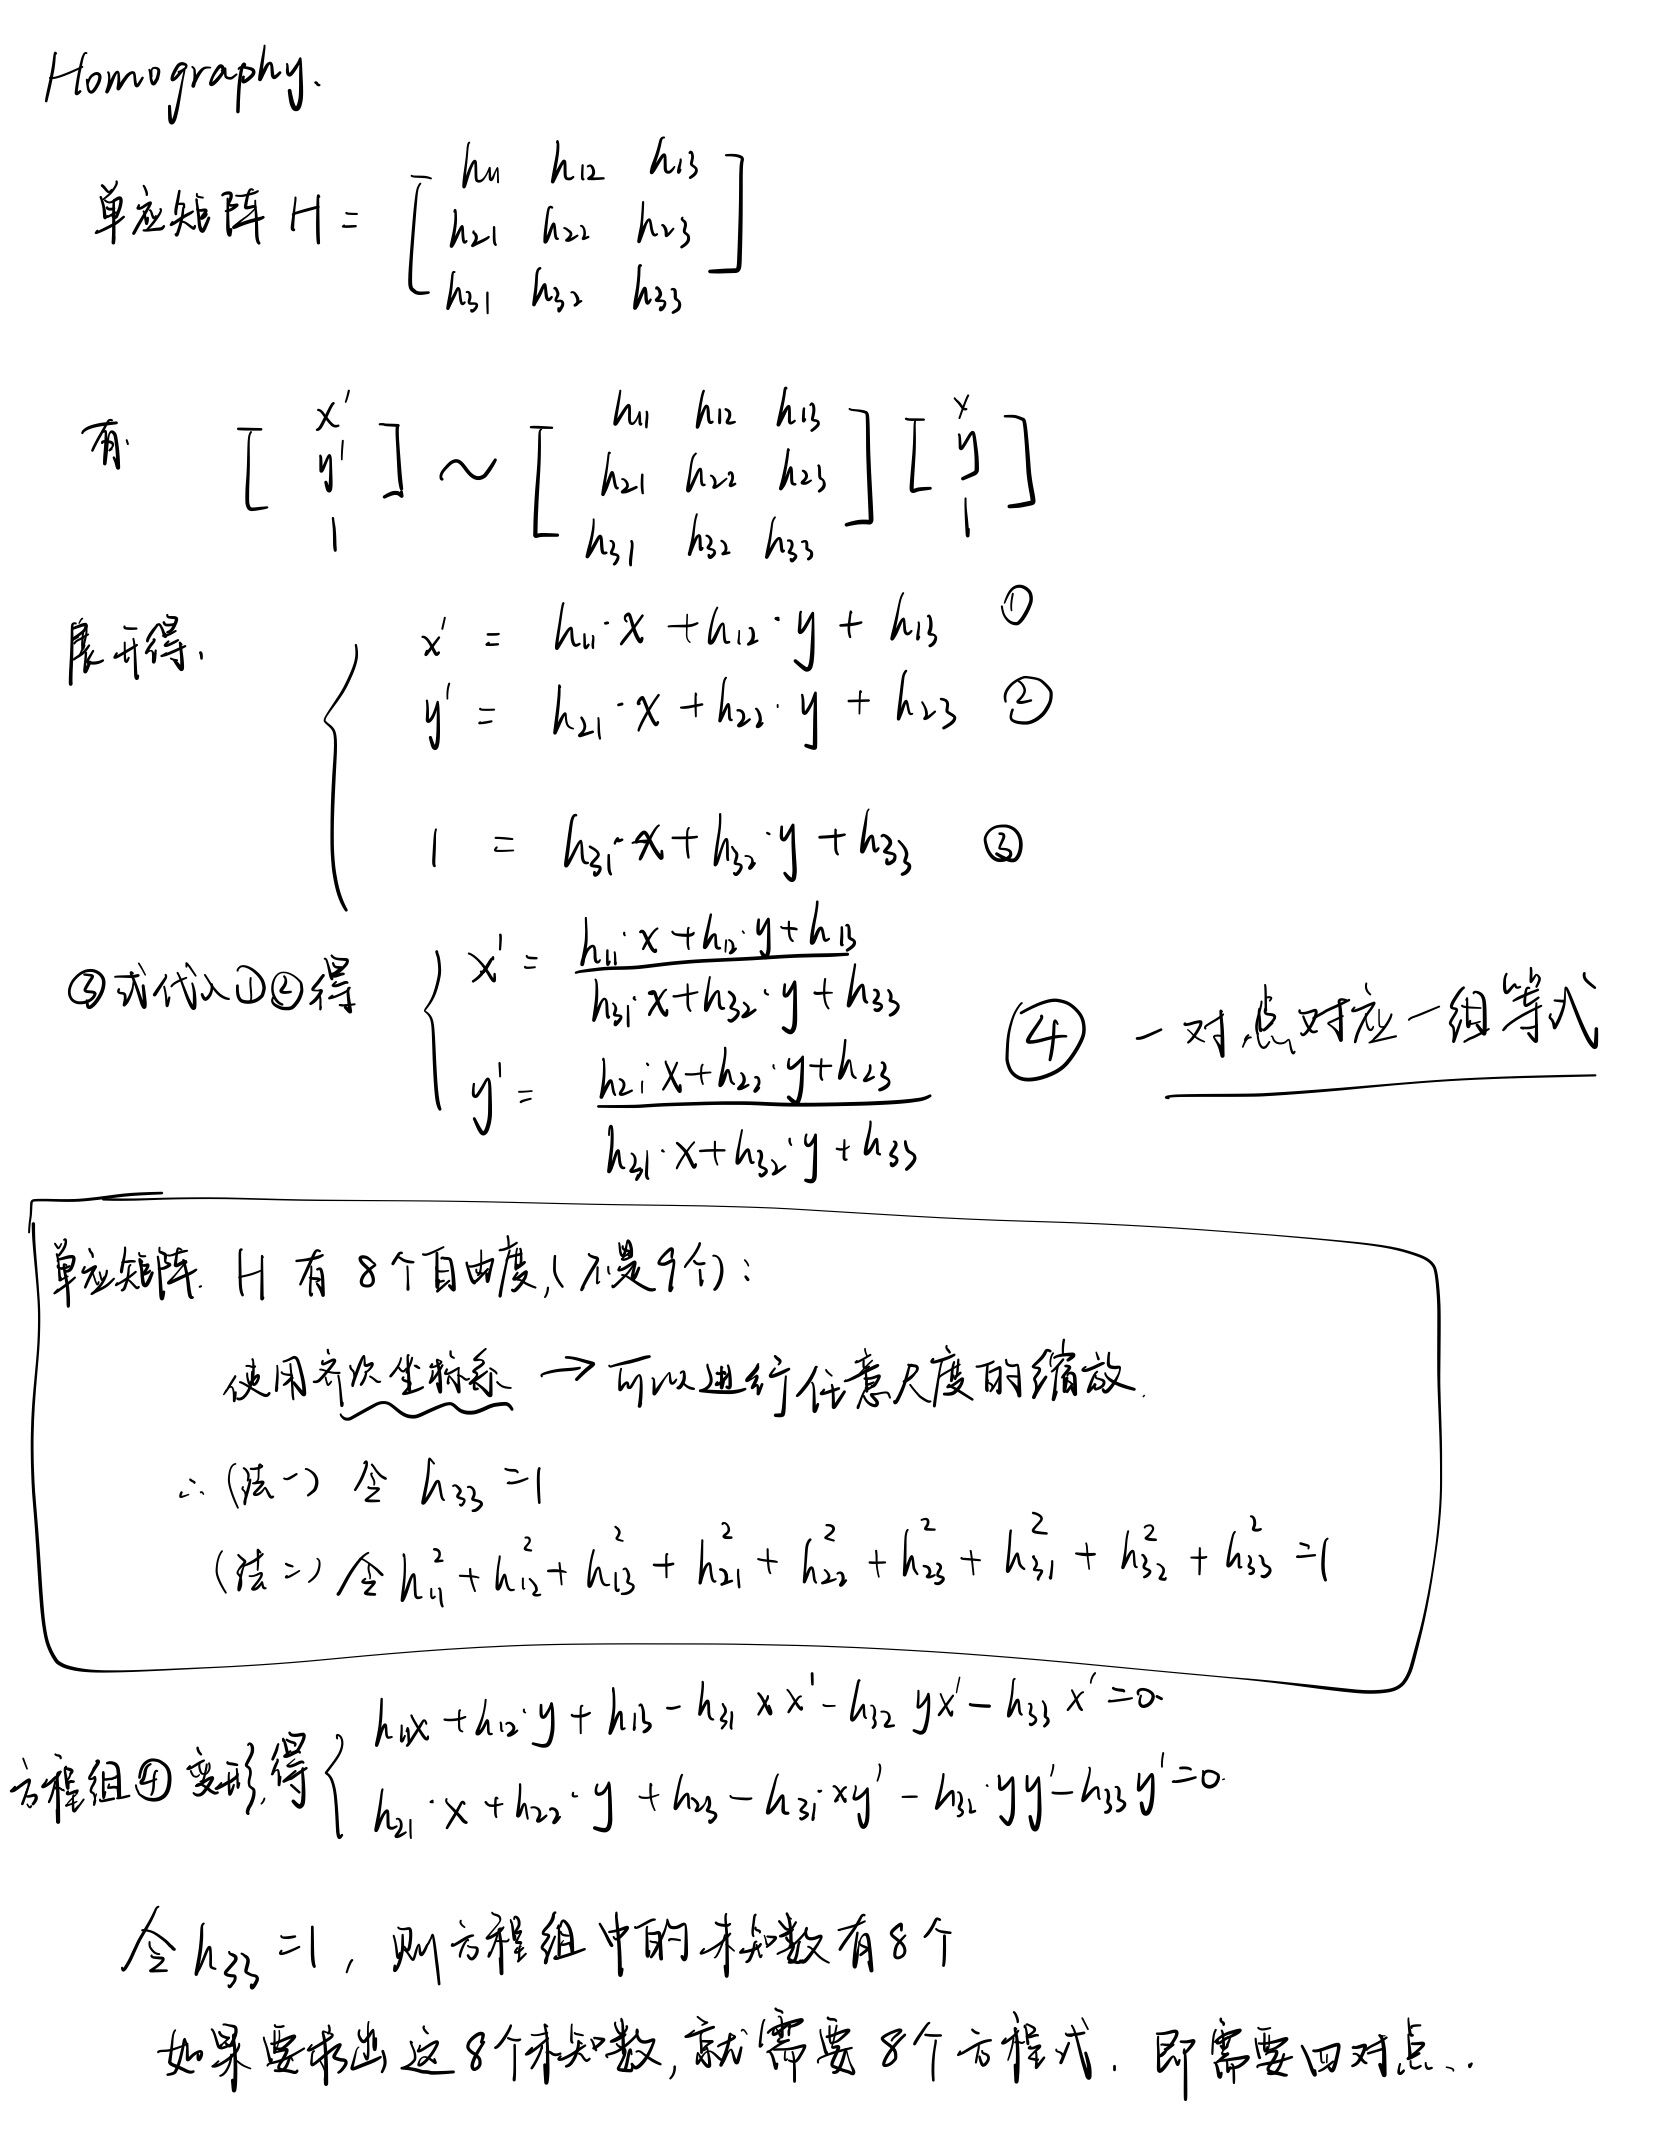 Homography.
单应矩阵 H = [ h11 h12 h13
h21 h22 h23
h31 h32 h33 ]
有 [ x' y' 1 ] ~ [ h11 h12 h13
h21 h22 h23
h31 h32 h33 ] [ x y 1 ]
展开得, { x' = h11·x + h12·y + h13 ①
y' = h21·x + h22·y + h23 ②
1 = h31·x + h32·y + h33 ③
③式代入①②得 { x' = (h11·x + h12·y + h13) / (h31·x + h32·y + h33)
④ 一对点对应一组等式
y' = (h21·x + h22·y + h23) / (h31·x + h32·y + h33)
单应矩阵 H 有 8个自由度,(不是9个):
使用齐次坐标系 → 可以进行任意尺度的缩放.
∴ (法一) 令 h33 = 1
(法二) 令 h11² + h12² + h13² + h21² + h22² + h23² + h31² + h32² + h33² = 1
方程组④变形,得 { h11x + h12·y + h13 - h31 xx' - h32 yx' - h33 x' = 0.
h21·x + h22·y + h23 - h31·xy' - h32·yy' - h33 y' = 0.
令 h33 = 1, 则方程组中的未知数有8个
如果要求出这8个未知数,就需要8个方程式. 即需要四对点..